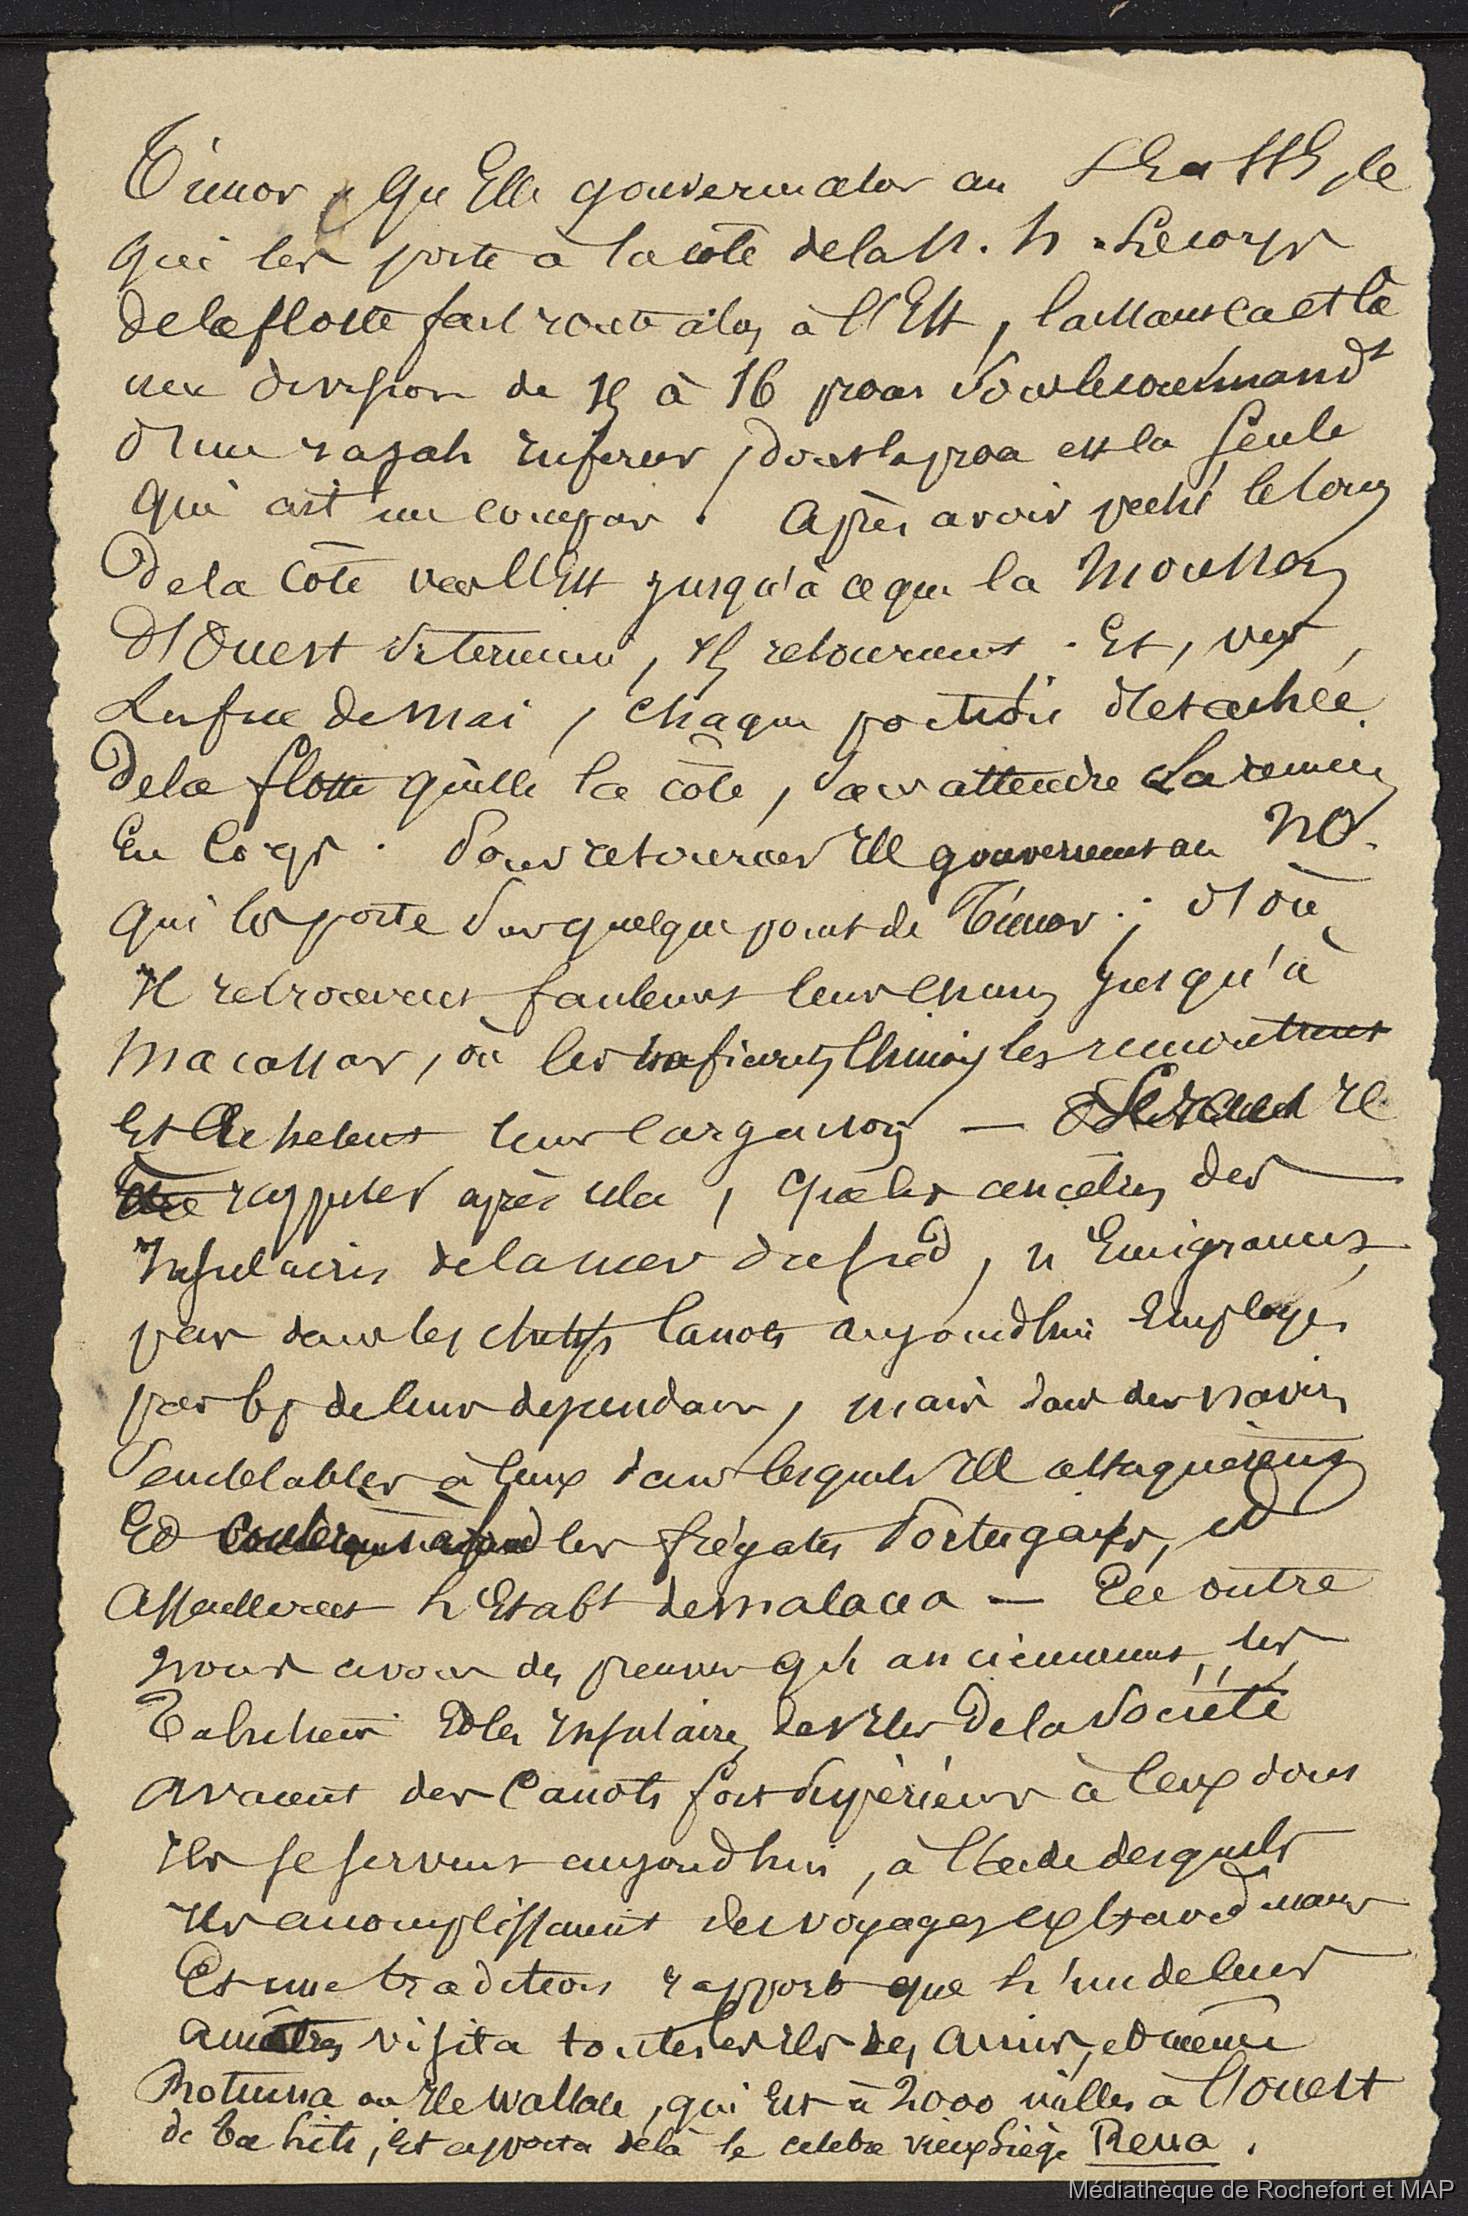 Timor, qu'Elle gouvernator au S E a SSE, ce
qui les porte à la côte de la N. h. Le corps
de la flotte fait route alors à l'Est, laissant ca et là
une division de 15 à 16 proas sous le commandt
d'un rajah inferieur, dont la proa est la seule
qui ait un compas. Après avoir peché le long
de la côte vers l'Est jusqu'à ce que la Mousson
d'Ouest se termine, Ils retournent. Et, vers
la fin de Mai, chaque portion détachée
de la flotte quitte la côte, sans attendre la réunion
En corps. Pour retourner Ils gouvernent au NO.
qui les porte sur quelque point de Timor; d'où
Il retrouvent facilement leur chemin jusqu'à
Macassar, où les trafiquants Chinois les rencontrent
Et Achetent leur cargaison — Il
rappeler après cela, que les ancêtres des
Insulaires de la mer du sud, n'Emigrant
pas dans les chetifs canots aujourdhui Employés
par les de leurs dependans, mais dans des navires
Semblables à Ceux dans lesquels Ils attaquèrent
Et les frégates Portugaises, et
Assaillirent l'Etabt de Malacca — En outre
nous avons des preuves qu'anciennement, les
Tahitiens Et les Insulaires des Iles de la Société
avaient des Canots fort supérieurs à Ceux dont
Ils se servent aujourdhui, à l'aide desquels
Ils accomplissaient des voyages extraordinaires
Et une tradition rapporte que l'un de leurs
ancêtres visita toutes les Iles des Amis, et même
Rotuma ou Ile Wallace, qui Est à 2000 milles à l'ouest
de Tahiti, Et apporta de là le celebre vieux Siège Reua.
Médiathèque de Rochefort et MAP